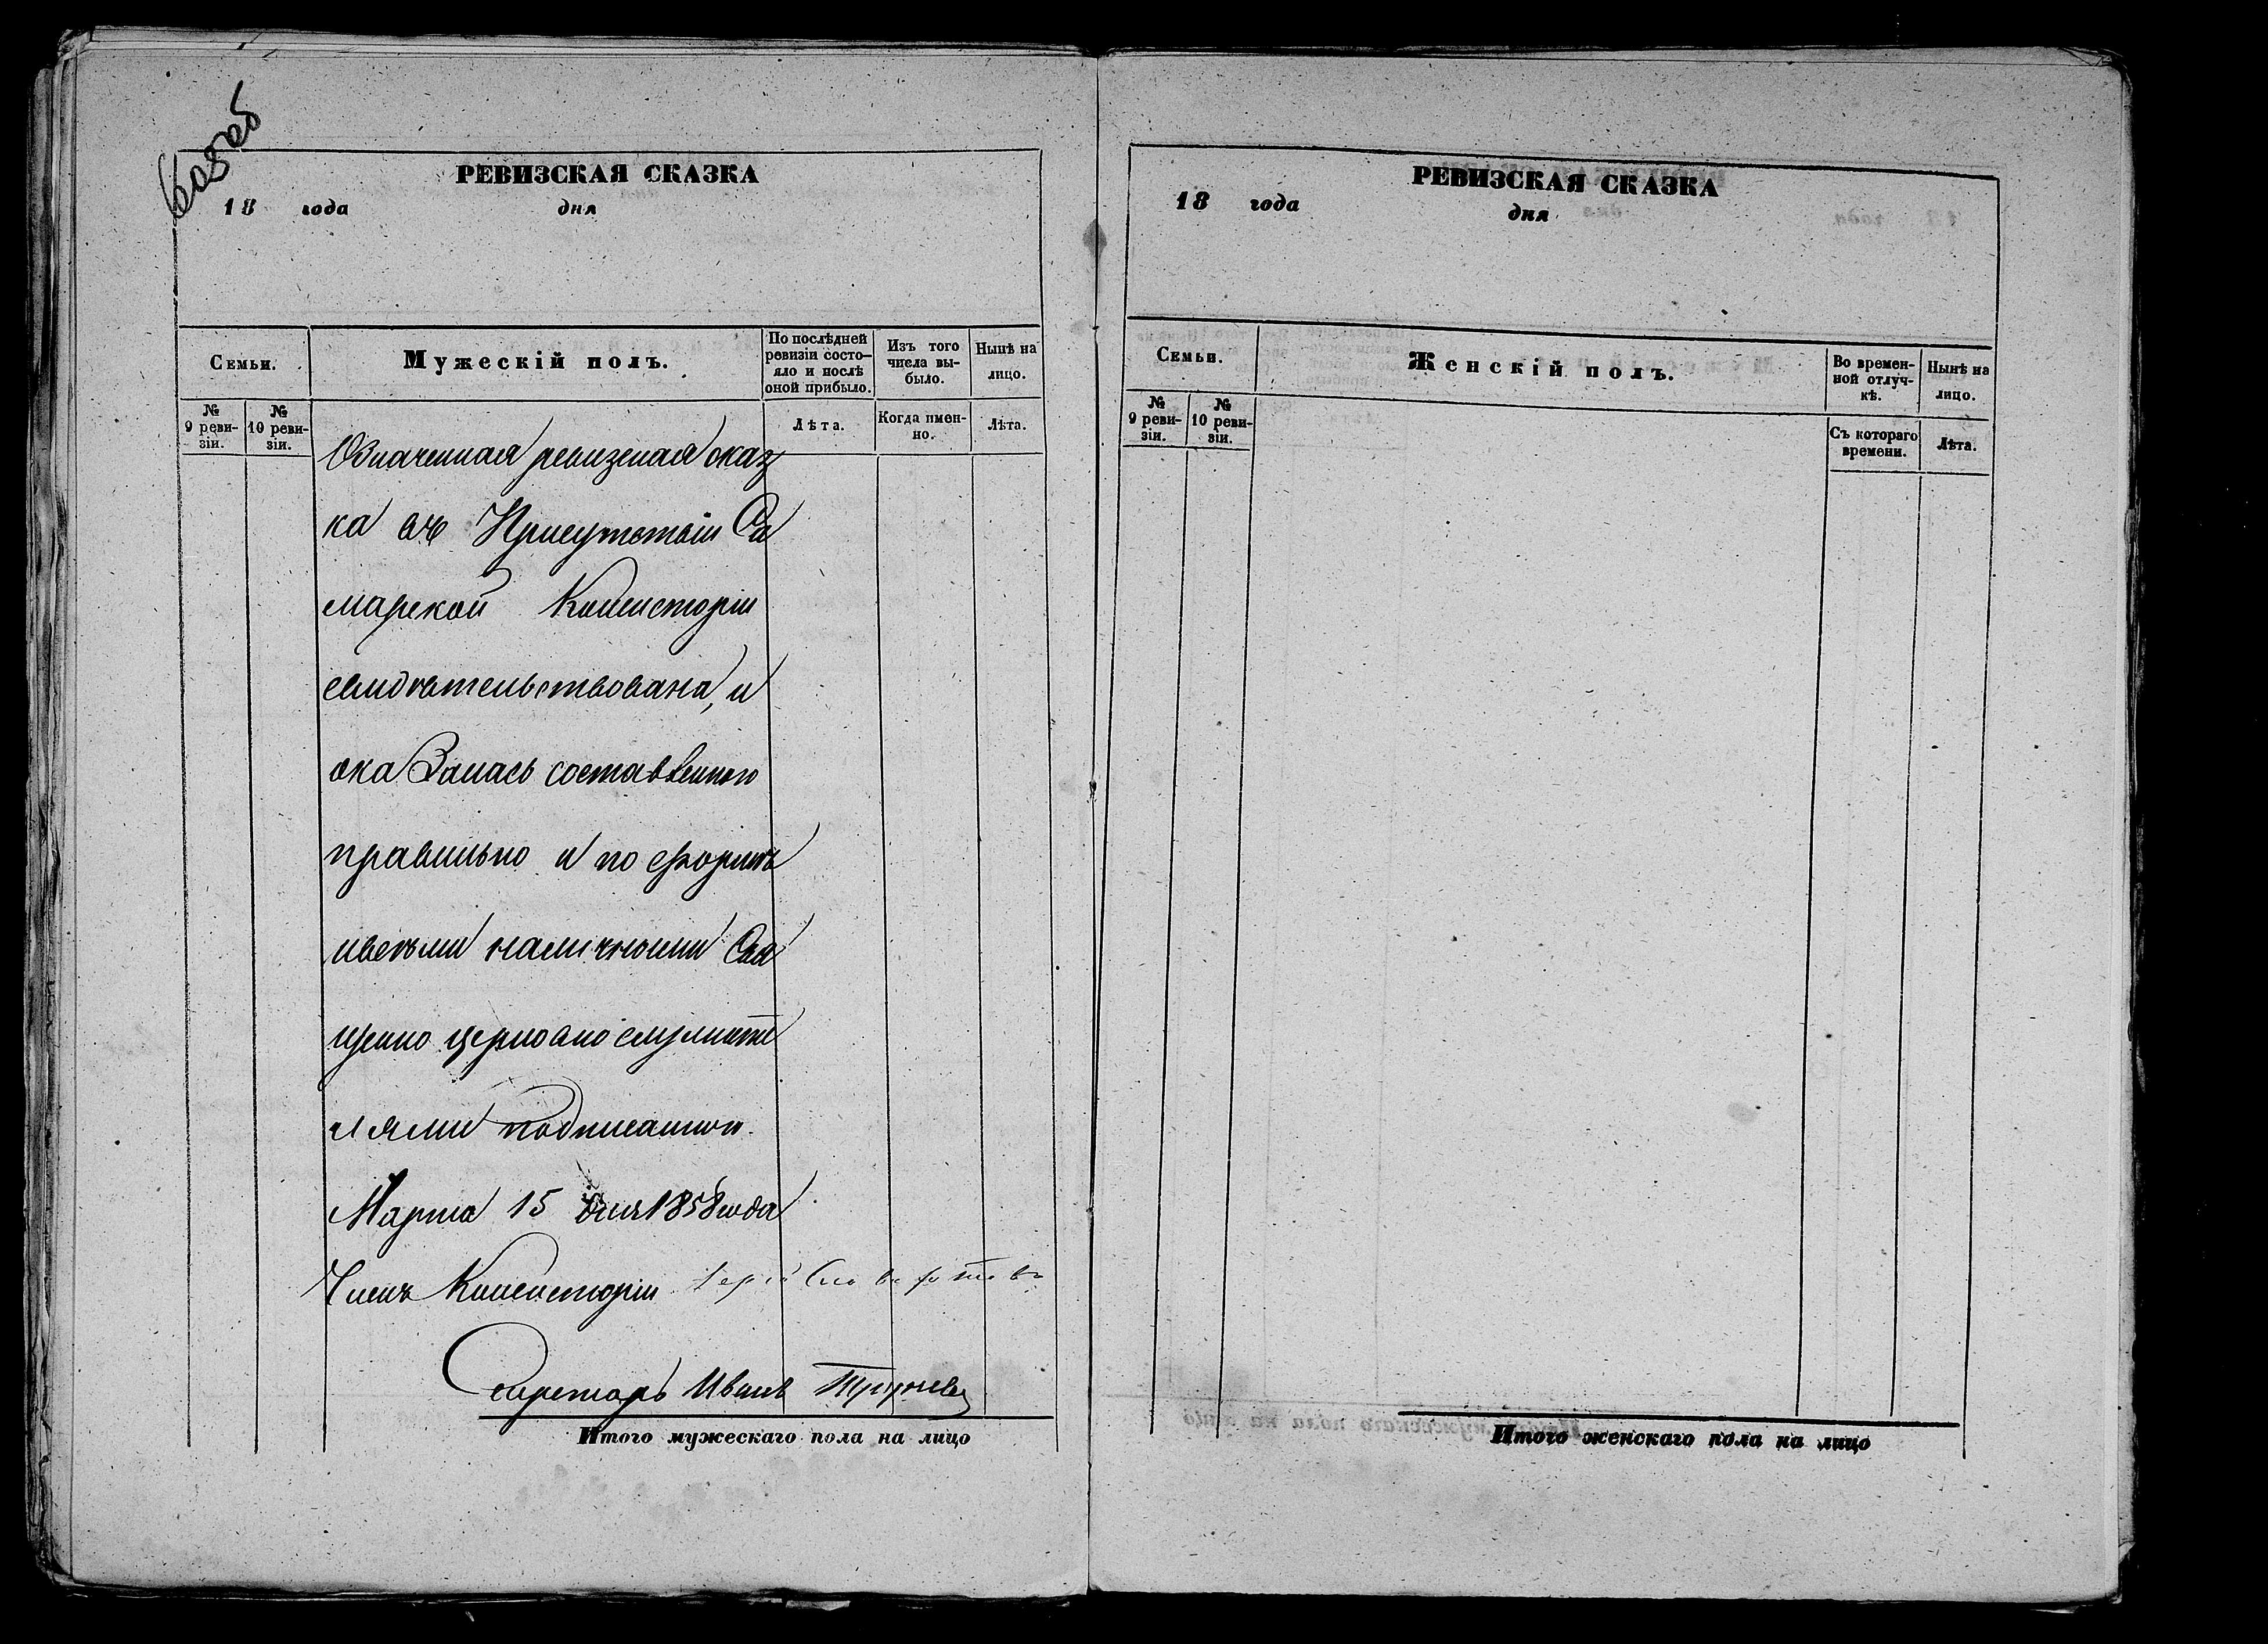 РЕВИЗСКАЯ СКАЗКА
18 года дня
Семьи.
Мужескій полъ.
По послѣдней ревизіи состо-
яло и послѣ оной прибыло.
Изъ того числа вы-
было.
Нынѣ на лицо.
№ 9 реви-
зіи.
№ 10 реви-
зіи.
Лѣта.
Когда имен-
но.
Лѣта.
Означенная ревизская сказ
ка въ Присутствіи Са
марской Консисторіи
свидѣтельствована, и
оказалась составленною
правильно и по формѣ
ивсѣми наличными Свя
щенно церковно служите
лями подписанною.
Марта 15 дня 1858 года
Членъ Консисторіи
Секретарь Иванъ
Итого мужескаго пола на лицо
РЕВИЗСКАЯ СКАЗКА
18 года дня
Семьи.
Женскій полъ.
Во времен-
ной отлуч-
кѣ.
Нынѣ на лицо.
№ 9 реви-
зіи.
№ 10 реви-
зіи.
Съ котораго времени.
Лѣта.
Итого женскаго пола на лицо